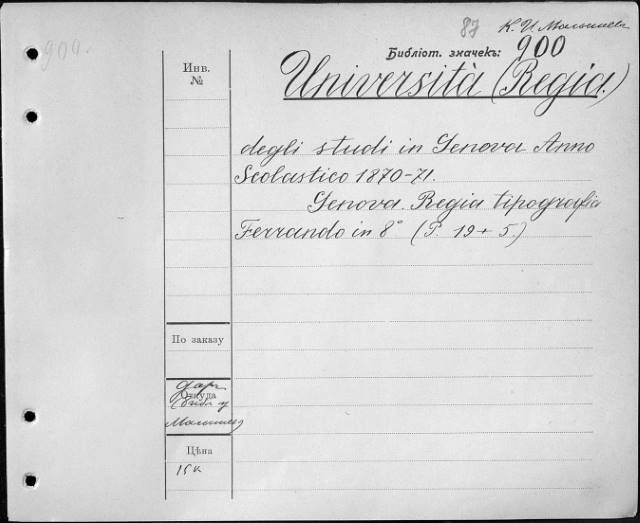 87 К. И. Малышев
900.
Библіот. значекъ: 900
Инв.
№
Università (Regia.)
degli studi in Genova Anno
Scolastico 1870-71.
Genova. Regia tipografia
Ferrando in 8° (P. 19 + 5.)
По заказу
Откуда
дар.
Малышев
Цѣна
15 к